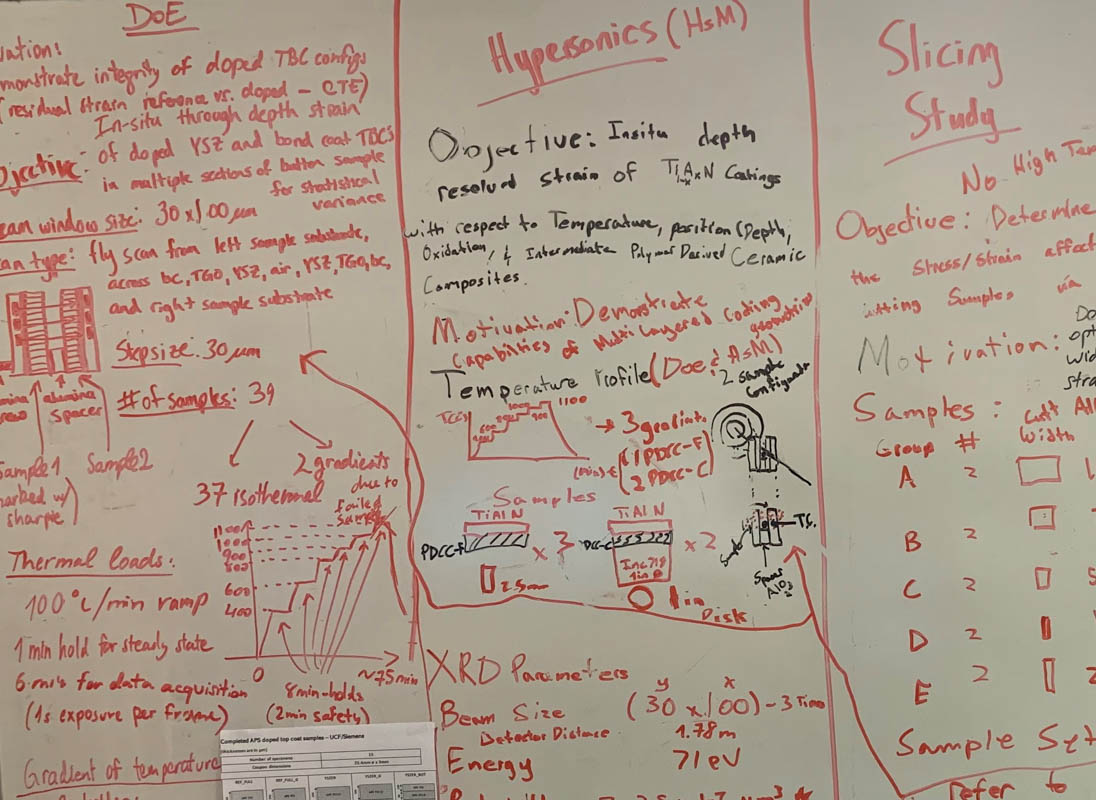 DoE
vation:
monstrate integrity of doped TBC configs
(residual strain reference vs. doped - CTE)
In-situ through depth strain
Objective: of doped YSZ and bond coat TBC's
in multiple sections of button sample
for statistical
variance
eam window size: 30 x 100 µm
can type: fly scan from left sample substrate,
across bc, TGO, YSZ, air, YSZ, TGO, bc,
and right sample substrate
Step size: 30 µm
# of samples: 39
mina
alumina
spacer
Sample 1
Sample 2
marked w/
sharpie
37 isothermal
2 gradients
due to
failed
sample
1100
1000
900
800
600
400
0
~75min
8min-holds
(2min safety)
Thermal loads:
100°C/min ramp
1 min hold for steady state
6 min's for data acquisition
(1s exposure per frame)
Gradient of temperature
Completed APS doped top coat samples – UCF/Siemens
Number of specimens
Coupon dimensions
Hypersonics (HsM)
Objective: Insitu depth
resolved strain of Ti1-xAlxN Coatings
with respect to Temperature, position (Depth,
Oxidation, & Intermediate Polymer Derived Ceramic
Composites.
Motivation: Demonstrate
Capabilities of Multi Layered Coating
geometries
Temperature Profile (DoE & HsM)
2 sample
1100
→ 3 gradient
1 PDCC-F
2 PDCC-C
(min) t
Samples
TiAlN
PDCC-F
x 3
2.5mm
TiAlN
x 2
Inc 718
1in ø
1in
Disk
TC.
Al2O3
XRD Parameters
y x
Beam Size (30 x 100) - 3 Times
Detector Distance 1.78m
Energy 71 eV
Slicing
Study
No High Tem
Objective: Determine
the stress/strain affect
cutting Samples via
Motivation:
Do
opt
wid
stra
Samples:
Group # Width
A 2
B 2
C 2
D 2
E 2
Sample Set
refer to